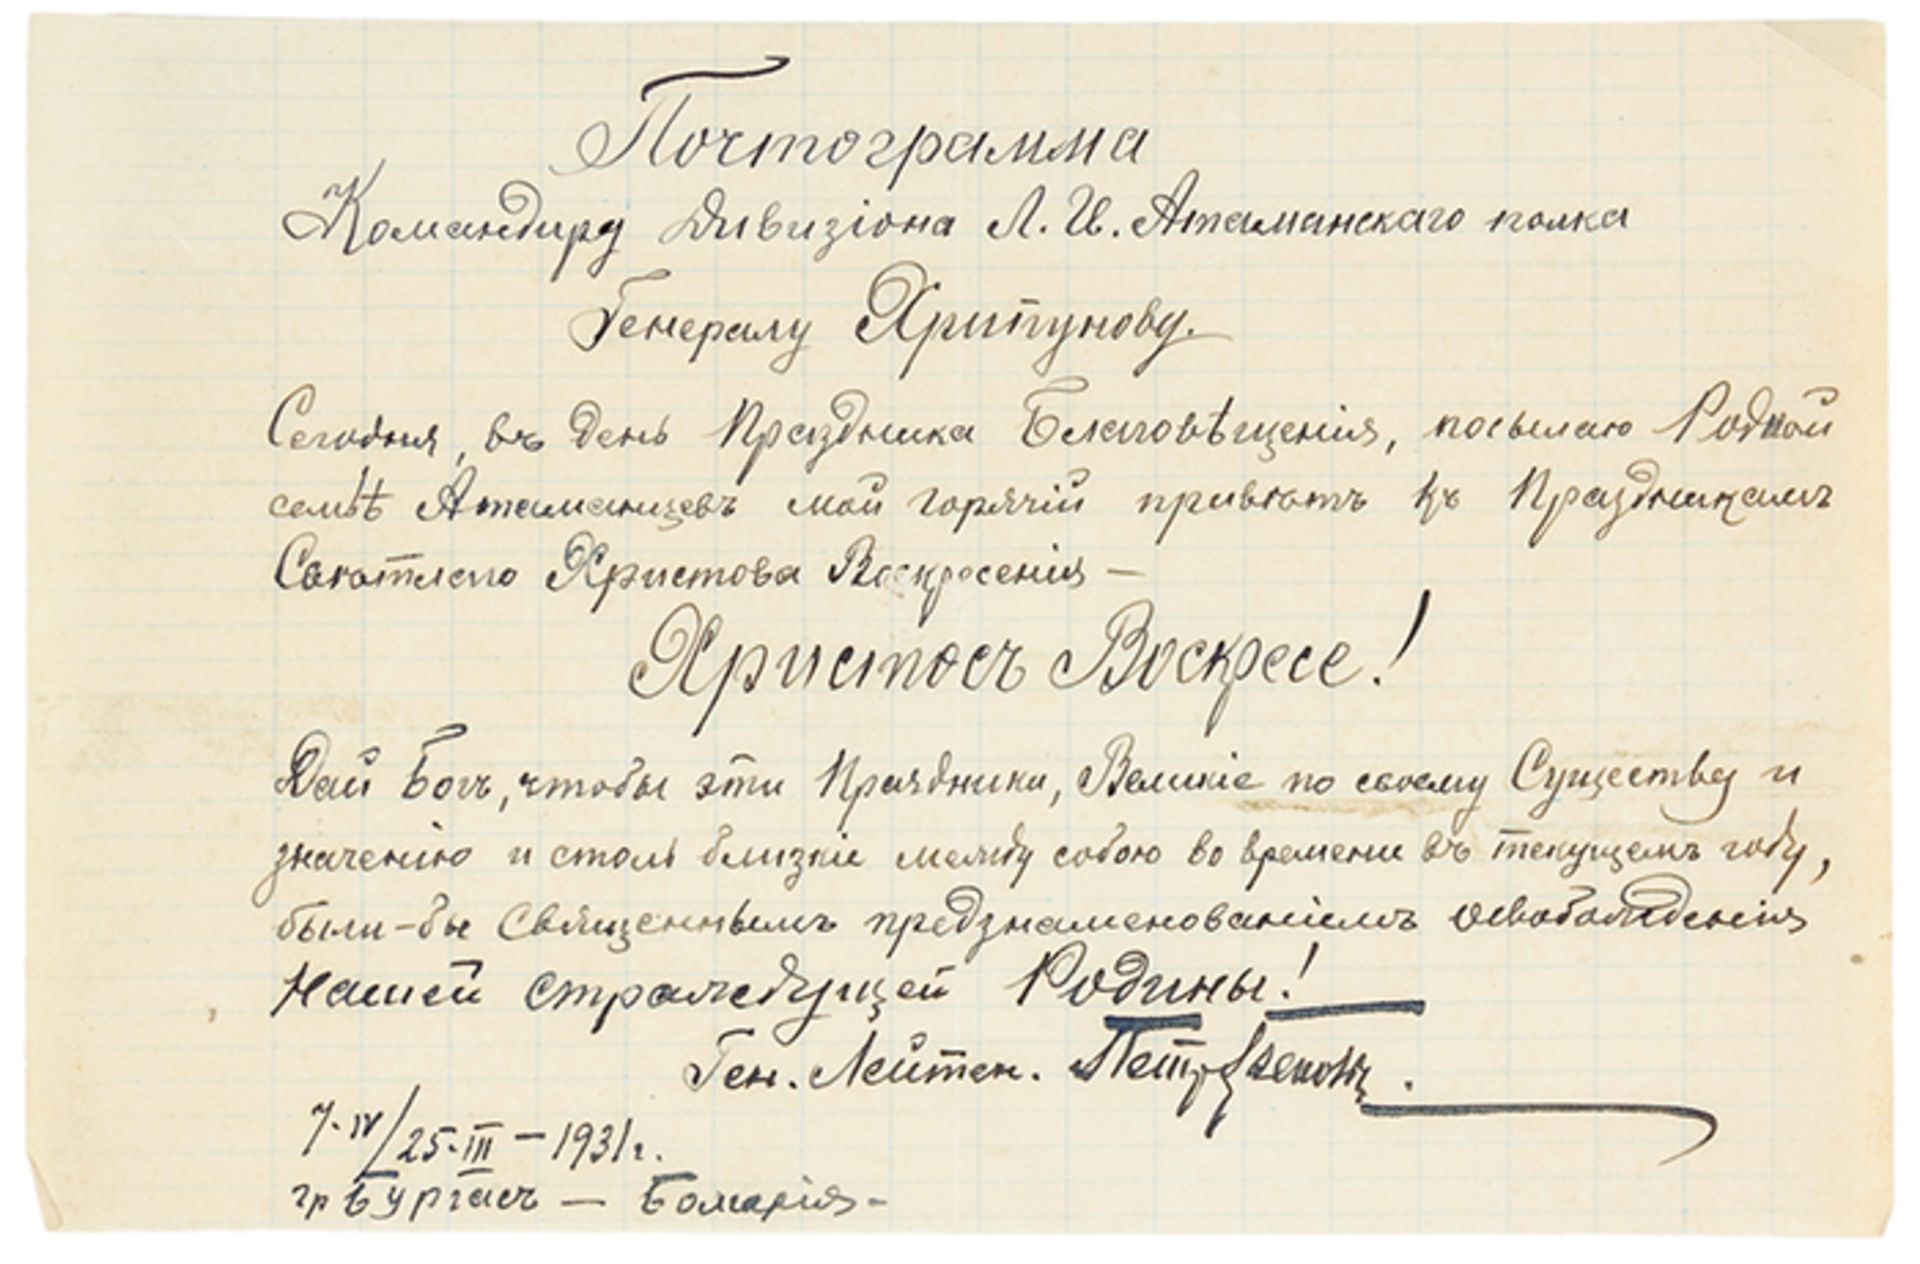 Почтограмма
Командиру Дивизіона Л. Гв. Атаманскаго полка
Генералу Хрипунову.
Сегодня, въ день Праздника Благовѣщенія, посылаю Родной
семьѣ Атаманцевъ мой горячій привѣтъ къ Праздникамъ
Свѣтлаго Христова Воскресенія —
Христосъ Воскресе!
Дай Богъ, чтобы эти Праздники, Великіе по своему Существу и
значенію и столь близкіе между собою во времени въ текущемъ году,
были-бы Священнымъ предзнаменованіемъ освобожденія
Нашей страждущей Родины!
Ген. Лейтен.
7.IV/25.III — 1931г.
гр Бургасъ — Болгарія —